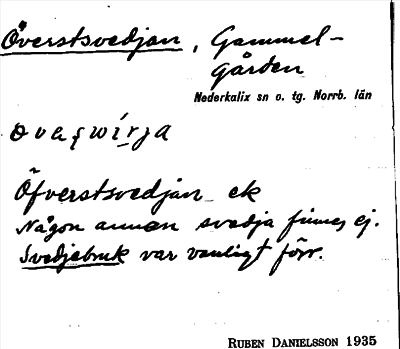 Överstsvedjan, Gammel-
gården
Nederkalix sn o. tg. Norrb. län
Öfverstsvedjan ek
Någon annan svedja finnes ej.
Svedjebruk var vanligt förr.
RUBEN DANIELSSON 1935